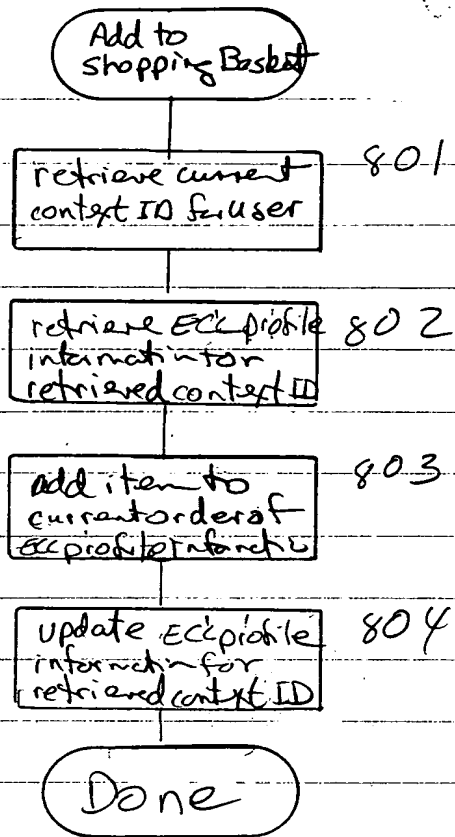 Add to
shopping Basket
retrieve current
context ID for user
801
retrieve ECC profile
information for
retrieved context ID
802
add item to
current order of
ECC profile
803
update ECC profile
information for
retrieved context ID
804
Done